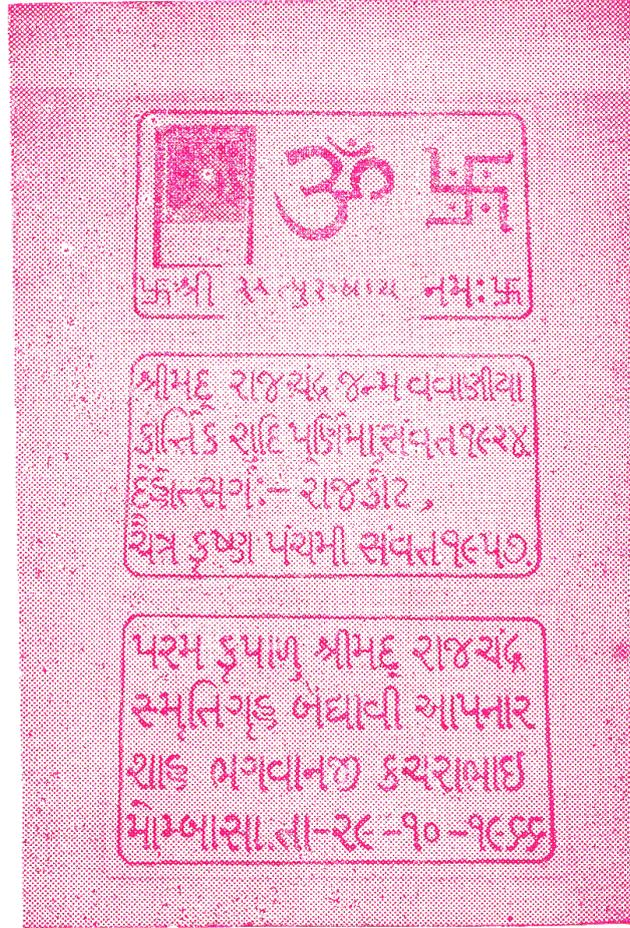 ॐ 卐
卐 શ્રી સત્પુરુષાય નમઃ 卐
શ્રીમદ્ રાજચંદ્ર જન્મ વવાણીયા
કાર્તિક સુદિ પુર્ણિમા સંવત ૧૯૨૪
દેહોત્સર્ગઃ- રાજકોટ,
ચૈત્ર કૃષ્ણ પંચમી સંવત ૧૯૫૭.
પરમ કૃપાળુ શ્રીમદ્ રાજચંદ્ર
સ્મૃતિગૃહ બંધાવી આપનાર
શાહ ભગવાનજી કચરાભાઇ
મોમ્બાસા. તા-૨૯-૧૦-૧૯૬૬